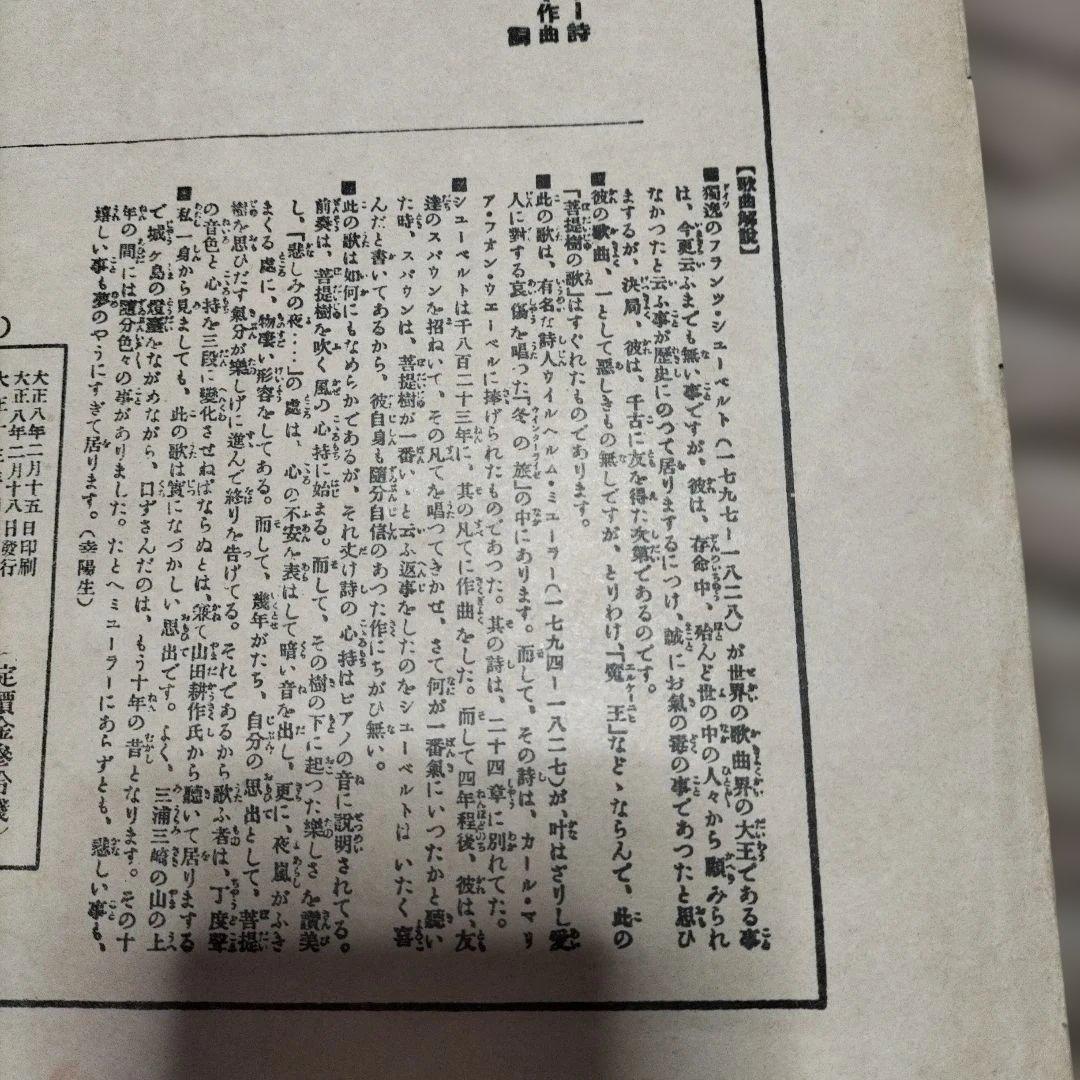 ー詩
作曲
【歌曲解説】
■獨逸のフランツ・シューベルト(一七九七ー一八二八)が世界の歌曲界の大王である事
は、今更云ふまでも無い事ですが、彼は、存命中、殆んど世の中の人々から顧みられ
なかつたと云ふ事が歴史にのつて居りまするにつけ、誠にお氣の毒の事であつたと思ひ
まするが、決局、彼は、千古に友を得た次第であるのです。
■彼の歌曲、一として惡しきもの無しですが、とりわけ、『魔王』などゝならんで、此の
『菩提樹の歌』はすぐれたものであります。
■此の歌は、有名な詩人ウイルヘルム・ミユーラー(一七九四ー一八二七)が、叶はざりし愛
人に對する哀傷を唱つた『冬の旅』の中にあります。而して、その詩は、カール・マリ
ア・フオン・ウエーベルに捧げられたものであつた。其の詩は、二十四章に別れてた。
■シューベルトは千八百二十三年に、其の凡てに作曲をした。而して四年程後、彼は、友
達のスパウンを招ねいて、その凡てを唱つてきかせ、さて何が一番氣にいつたかと聽い
た時、スパウンは、菩提樹が一番いゝと云ふ返事をしたのをシューベルトは いたく喜
んだと書いてあるから、彼自身も隨分自信のあつた作にちがひ無い。
■此の歌は如何にもなめらかであるが、それ丈け詩の心持はピアノの音に説明されてる。
前奏は、菩提樹を吹く風の心持に始まる。而して、その樹の下に起つた樂しさを讚美
し、『悲しみの夜‥‥』の處は、心の不安を表はして暗い音を出し、更に、夜嵐がふき
まくる處に、物凄い形容をしてある。而して、幾年がたち、自分の思出として、菩提
樹を思ひだす氣分が樂しげに進んで終りを告げてる。それであるから歌ふ者は、丁度聲
の音色と心持を三段に變化させねばならぬとは、兼て山田耕作氏から聽いて居りまする
■私一身から見ましても、此の歌は實になづかしい思出です。よく、三浦三崎の山の上
で、城ヶ島の燈臺をながめながら、口ずさんだのは、もう十年の昔となります。その十
年の間には隨分色々の事がありました。たとへミューラーにあらずとも、悲しい事も、
嬉しい事も夢のやうにすぎて居ります。(幸陽生)
大正八年二月十五日印刷
大正八年二月十八日發行
定價金參拾錢